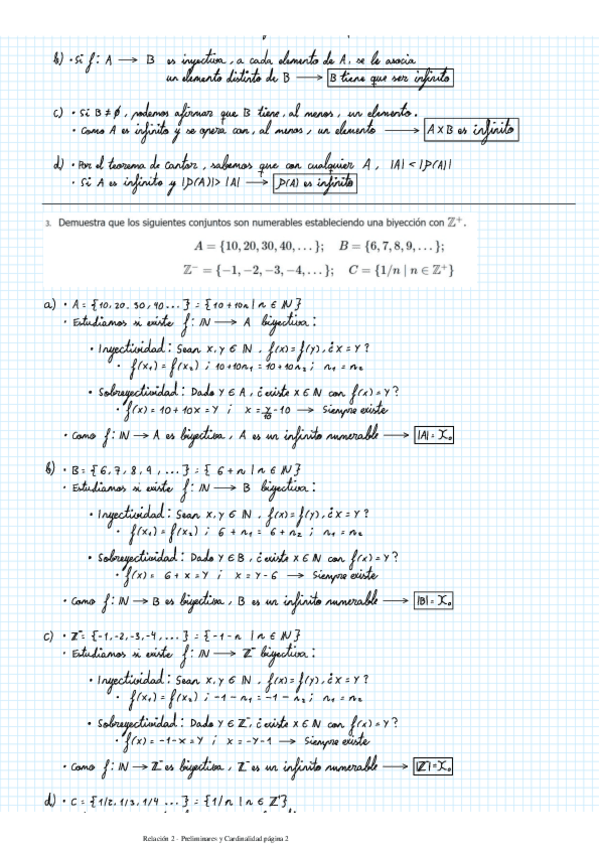 b) · Si f: A → B es inyectiva, a cada elemento de A, se le asocia
un elemento distinto de B → B tiene que ser infinito
c) · Si B ≠ ∅, podemos afirmar que B tiene, al menos, un elemento.
· Como A es infinito y se opera con, al menos, un elemento → A x B es infinito
d) · Por el teorema de Cantor, sabemos que con cualquier A, |A| < |P(A)|
· Si A es infinito y |P(A)| > |A| → P(A) es infinito
3. Demuestra que los siguientes conjuntos son numerables estableciendo una biyección con ℤ⁺.
A = {10, 20, 30, 40, ...}; B = {6, 7, 8, 9, ...};
ℤ⁻ = {−1, −2, −3, −4, ...}; C = {1/n | n ∈ ℤ⁺}
a) · A = {10, 20, 30, 40 ...} = {10 + 10n | n ∈ ℕ}
· Estudiamos si existe f: ℕ → A biyectiva:
· Inyectividad: Sean x, y ∈ ℕ, f(x) = f(y), ¿x = y?
· f(x₁) = f(x₂) ; 10 + 10n₁ = 10 + 10n₂ ; n₁ = n₂
· Sobreyectividad: Dado y ∈ A, ¿existe x ∈ ℕ con f(x) = y?
· f(x) = 10 + 10x = y ; x = y/10 - 10 → Siempre existe
· Como f: ℕ → A es biyectiva, A es un infinito numerable → |A| = ℵ₀
b) · B = {6, 7, 8, 9, ...} = {6 + n | n ∈ ℕ}
· Estudiamos si existe f: ℕ → B biyectiva:
· Inyectividad: Sean x, y ∈ ℕ, f(x) = f(y), ¿x = y?
· f(x₁) = f(x₂) ; 6 + n₁ = 6 + n₂ ; n₁ = n₂
· Sobreyectividad: Dado y ∈ B, ¿existe x ∈ ℕ con f(x) = y?
· f(x) = 6 + x = y ; x = y - 6 → Siempre existe
· Como f: ℕ → B es biyectiva, B es un infinito numerable → |B| = ℵ₀
c) · ℤ⁻ = {-1, -2, -3, -4, ...} = {-1 - n | n ∈ ℕ}
· Estudiamos si existe f: ℕ → ℤ⁻ biyectiva:
· Inyectividad: Sean x, y ∈ ℕ, f(x) = f(y), ¿x = y?
· f(x₁) = f(x₂) ; -1 - n₁ = -1 - n₂ ; n₁ = n₂
· Sobreyectividad: Dado y ∈ ℤ⁻, ¿existe x ∈ ℕ con f(x) = y?
· f(x) = -1 - x = y ; x = -y - 1 → Siempre existe
· Como f: ℕ → ℤ⁻ es biyectiva, ℤ⁻ es un infinito numerable → |ℤ⁻| = ℵ₀
d) · C = {1/2, 1/3, 1/4 ...} = {1/n | n ∈ ℤ⁺}
Relación 2 - Preliminares y Cardinalidad página 2